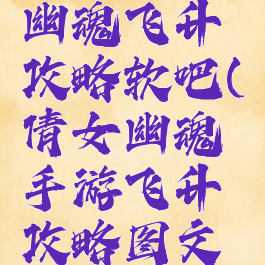 幽魂飞升
攻略软吧(
倩女幽魂
手游飞升
攻略图文